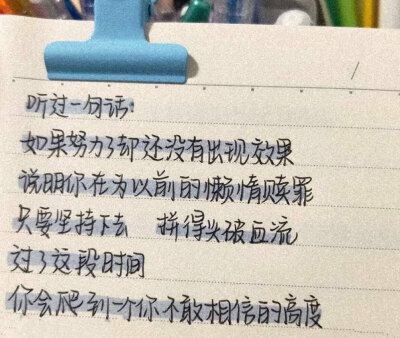 听过一句话:
如果努力了却还没有出现效果
说明你在为以前的懒惰赎罪
只要坚持下去 拼得头破血流
过了这段时间
你会爬到一个你不敢相信的高度